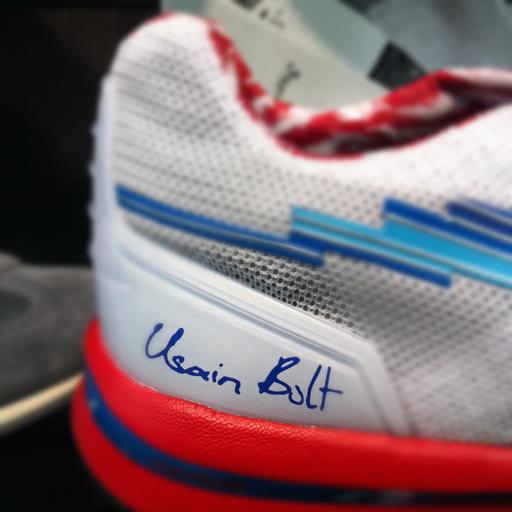 Usain Bolt